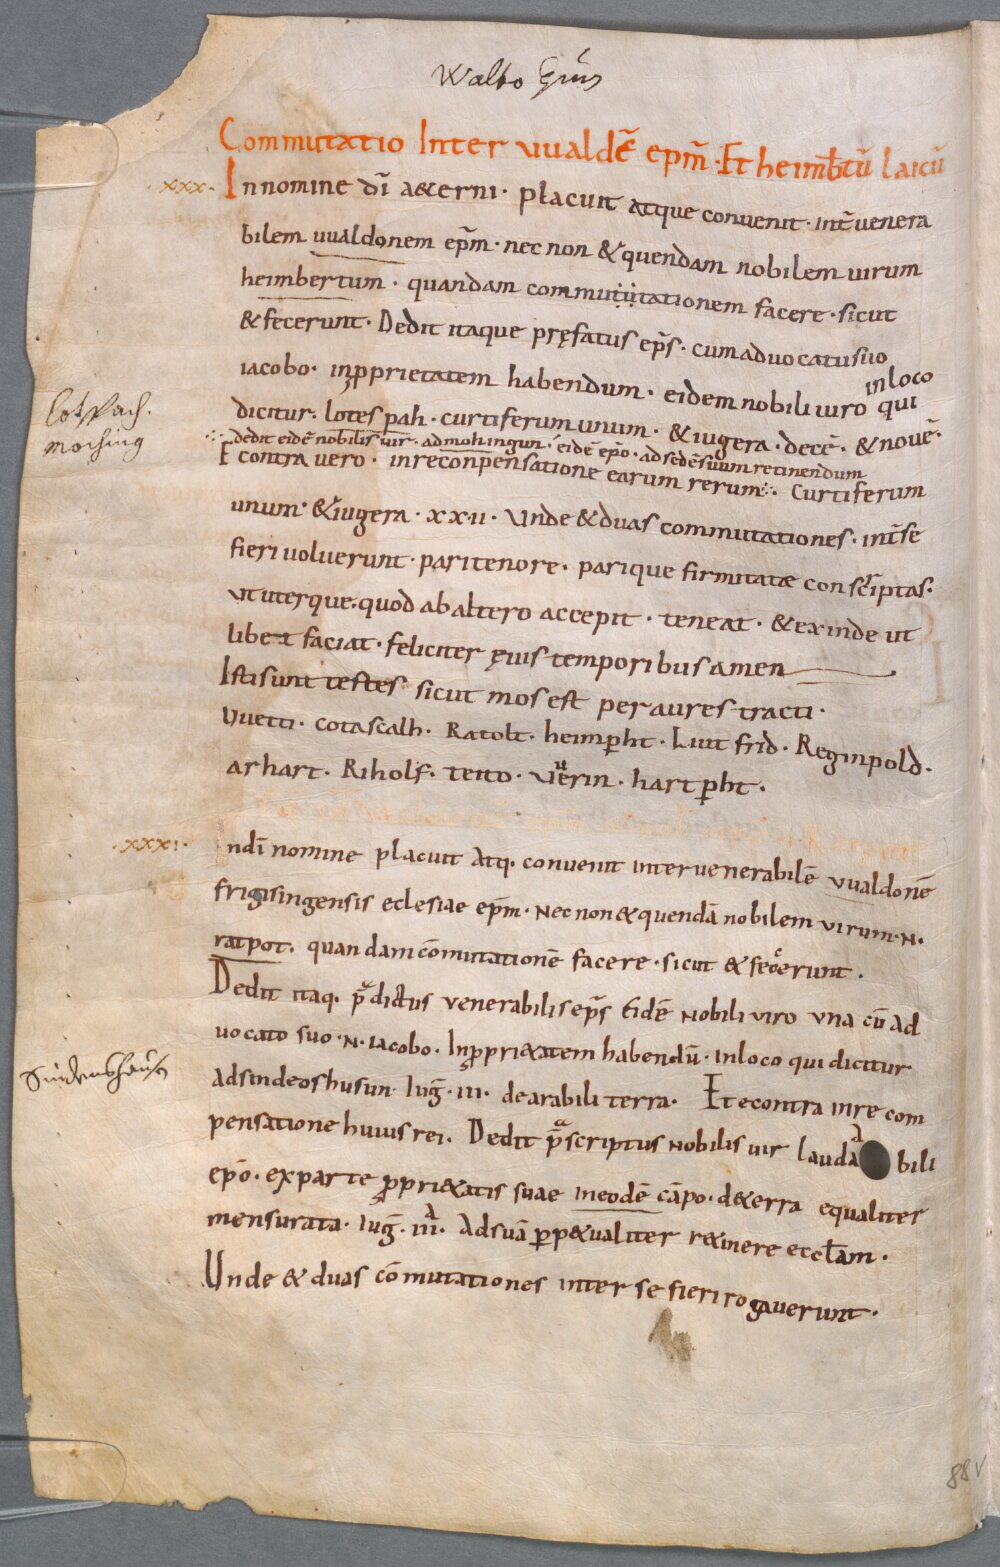 Walto Epũs
Commutatio Inter vualdē ep̄m · Et heimb̄tū laicū
· xxx · In nomine dī a&erni · placuit atque convenit · int̄ venera
bilem vvaldonem ep̄m · nec non & quendam nobilem virum
heimbertum · quandam commutitationem facere · sicut
& fecerunt · Dedit itaque pręfatus ep̄s · cum advocatu suo
iacobo · in ꝓprietatem habendum · eidem nobili viro in loco qui
lotzpach.
moching
dicitur · lotespah · curtiferum unum · & iugera · decē · & novē ·
dedit eidē nobilis vir · ad mohingun · eidē ep̄o · ad sedē suam retinendum
E contra vero · in reconpensatione earum rerum ∴ Curtiferum
unum · & iugera · xx·ii · Unde & duas commutationes · int̄ se
fieri voluerunt · pari tenore · parique firmitatæ conscriptas ·
Ut uterque · quod ab altero accepit · teneat · & exinde ut
libet faciat · feliciter ęvis temporibus amen
Isti sunt testes sicut mos est per aures tracti ·
Vvetti · Cotascalh · Ratolt · heimꝑht · Liutfrid · Reginpold ·
arhart · Riholf · tento · Vuerin · hartꝑht ·
· xxxi · In dī nomine placuit atq· convenit inter venerabilē vvaldonē
frigisingensis eclesiae ep̄m · Nec non & quendā nobilem virum · N ·
ratpot · quandam cōmutationē facere · sicut & fecerunt ·
Dedit itaq· p̄dictus venerabilis ep̄s Eidē Nobili viro una cū ad
vocato suo · N · iacobo · In ꝓpri&atem habendū · in loco qui dicitur
Sindenshausn
ad sindeoshusun · Iuḡ · iii · de arabili terra · Et econtra in re com
pensatione huius rei · Dedit p̄scriptus Nobilis vir laudabili
ep̄o · ex parte ꝓpri&atis suae in eodē cāpo · de terra equaliter
mensurata · Iuḡ · iii · Ad suā ꝑp&ualiter r&inere eccl̄am ·
Unde & duas cōmutationes inter se fieri rogaverunt ·
88v